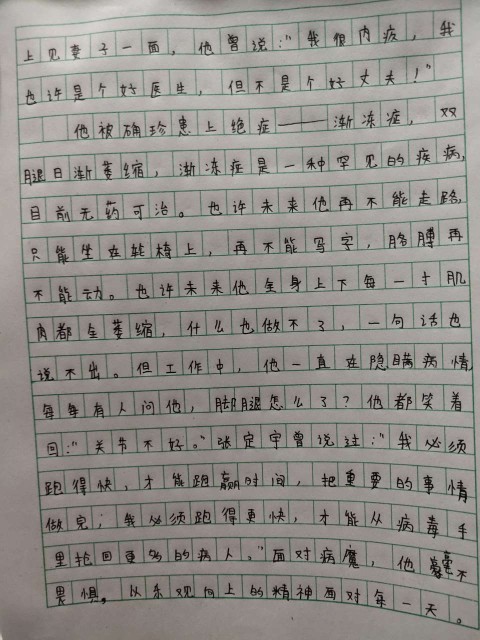 上见妻子一面，他曾说：“我很内疚，我
也许是个好医生，但不是个好丈夫！”
他被确珍患上绝症——渐冻症，双
腿日渐萎缩，渐冻症是一种罕见的疾病，
目前无药可治。也许未来他再不能走路，
只能坐在轮椅上，再不能写字，胳膊再
不能动。也许未来他全身上下每一寸肌
肉都会萎缩，什么也做不了，一句话也
说不出。但工作中，他一直在隐瞒病情，
每每有人问他，脚腿怎么了？他都笑着
回：“关节不好。”张定宇曾说过：“我必须
跑得快，才能跑赢时间，把重要的事情
做完；我必须跑得更快，才能从病毒手
里抢回更多的病人。”面对病魔，他毫不
畏惧，以乐观向上的精神面对每一天。